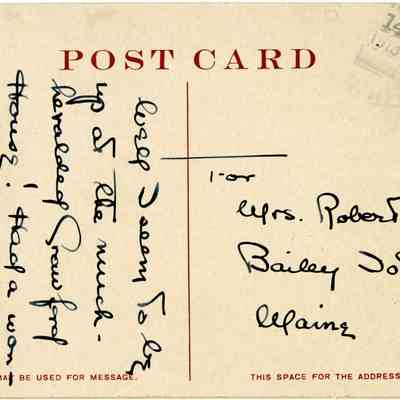 POST CARD
14
1913
Well I seem to be
up at the much-
heralded Crawford
House! Had a won-
For
Mrs. Robert
Bailey
Maine
MAY BE USED FOR MESSAGE.
THIS SPACE FOR THE ADDRESS